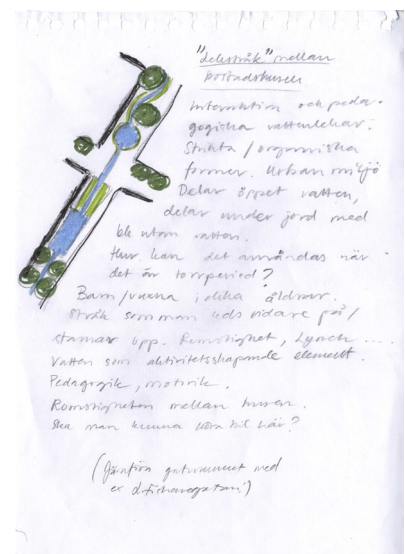 "Lekstråk" mellan
bostadshusen
Interaktion och peda-
gogiska vattenlekar.
Strikta / organiska
former. Urban miljö
Delar öppet vatten,
delar under jord med
utan vatten.
Hur kan det användas när
det är torrperiod?
Barn/vuxna i olika åldrar.
Stråk som man leds vidare på/
stannar upp. Rumslighet, Lynch ...
Vatten som aktivitetsskapande element.
Pedagogik, motorik.
Rumsligheten mellan husen.
Ska man kunna köra bil här?
(Jämföra gaturummet med
ex